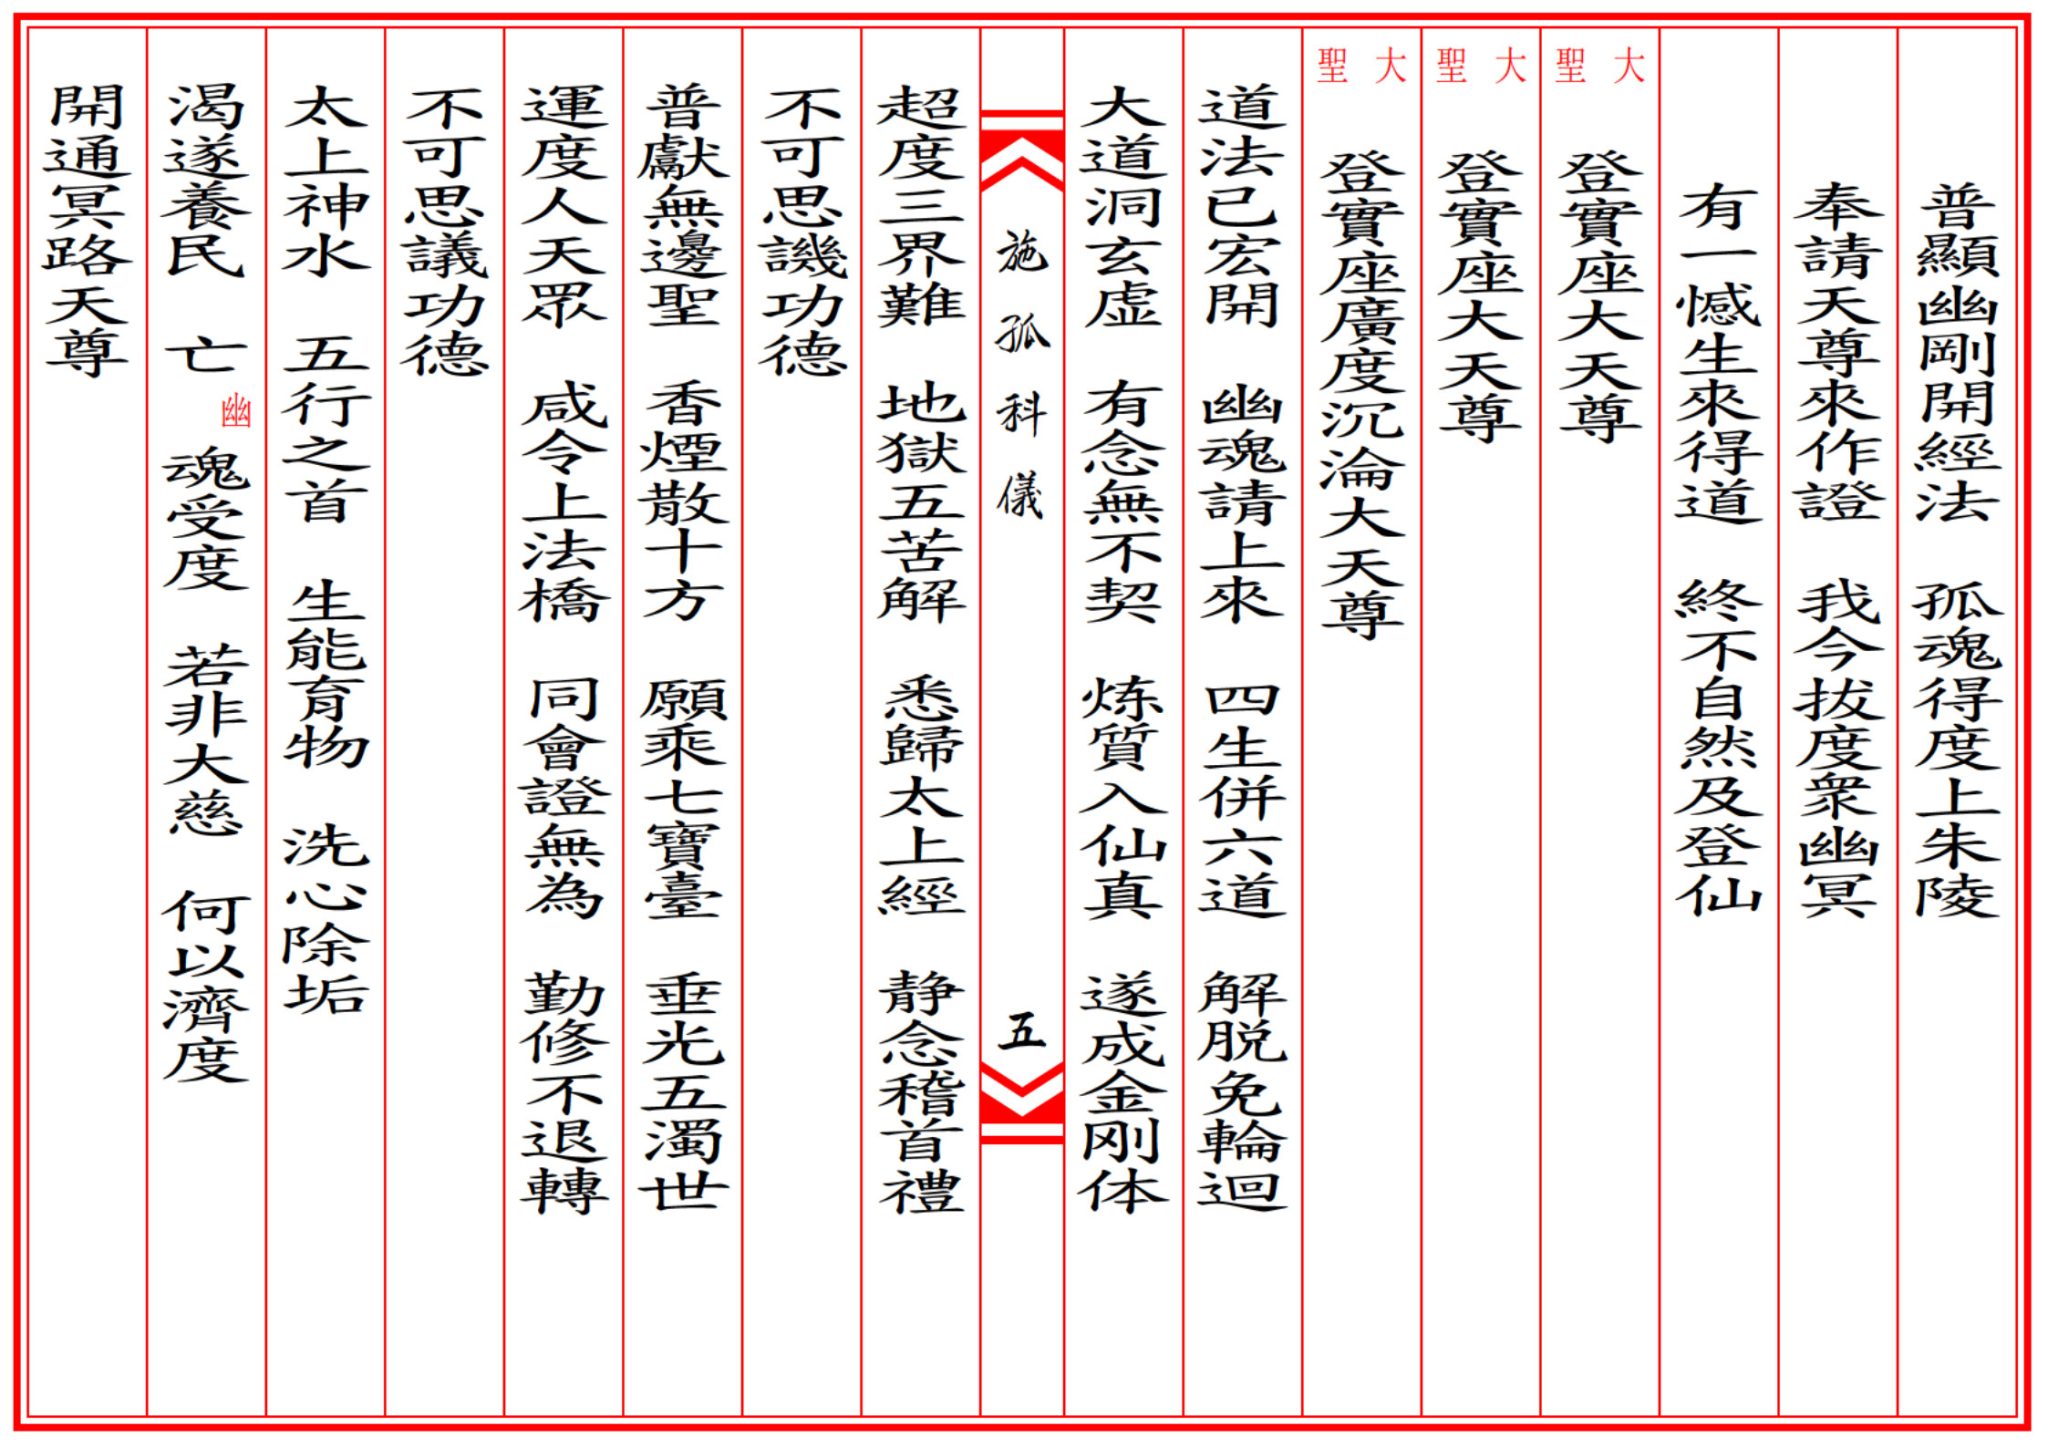 普顯幽剛開經法　孤魂得度上朱陵
奉請天尊來作證　我今拔度衆幽冥
有一憾生來得道　終不自然及登仙
大聖　登實座大天尊
大聖　登實座大天尊
大聖　登實座廣度沉淪大天尊
道法已宏開　幽魂請上來　四生併六道　解脱免輪迴
大道洞玄虛　有念無不契　炼質入仙真　遂成金剛体
施孤科儀　五
超度三界難　地獄五苦解　悉歸太上經　静念稽首禮
不可思譏功德
普獻無邊聖　香煙散十方　願乘七寶臺　垂光五濁世
運度人天眾　咸令上法橋　同會證無為　勤修不退轉
不可思議功德
太上神水　五行之首　生能育物　洗心除垢
渴遂養民　亡幽魂受度　若非大慈　何以濟度
開通冥路天尊